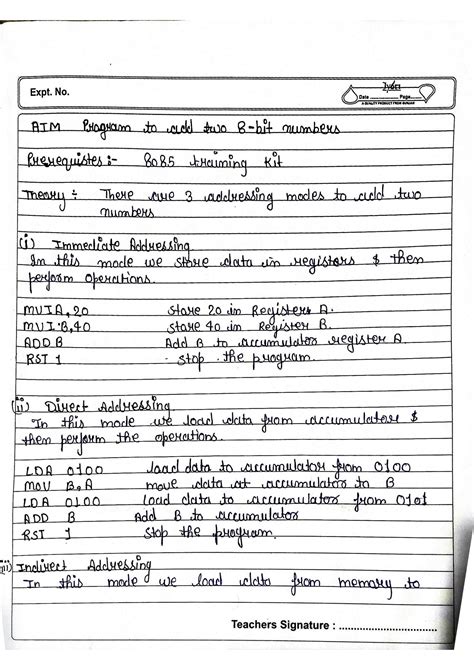 Expt. No.
Jyoti
Date Page
A QUALITY PRODUCT FROM GUNJAN
AIM Program to add two 8-bit numbers
Prerequistes :- 8085 training kit
Theory : There are 3 addressing modes to add two
numbers
(i) Immediate Addressing
In this mode we store data in registers & then
perform operations.
MVIA, 20 store 20 in Registers A.
MVI B, 40 store 40 in Register B.
ADD B Add B to accumulator register A.
RST 1 stop the program.
(ii) Direct Addressing
In this mode we load data from accumulator &
then perform the operations.
LDA 0100 load data to accumulator from 0100
MOV B,A move data at accumulator to B
LDA 0100 load data to accumulator from 0101
ADD B Add B to accumulator
RST 1 stop the program.
ii) Indirect Addressing
In this mode we load data from memory to
Teachers Signature : ........................